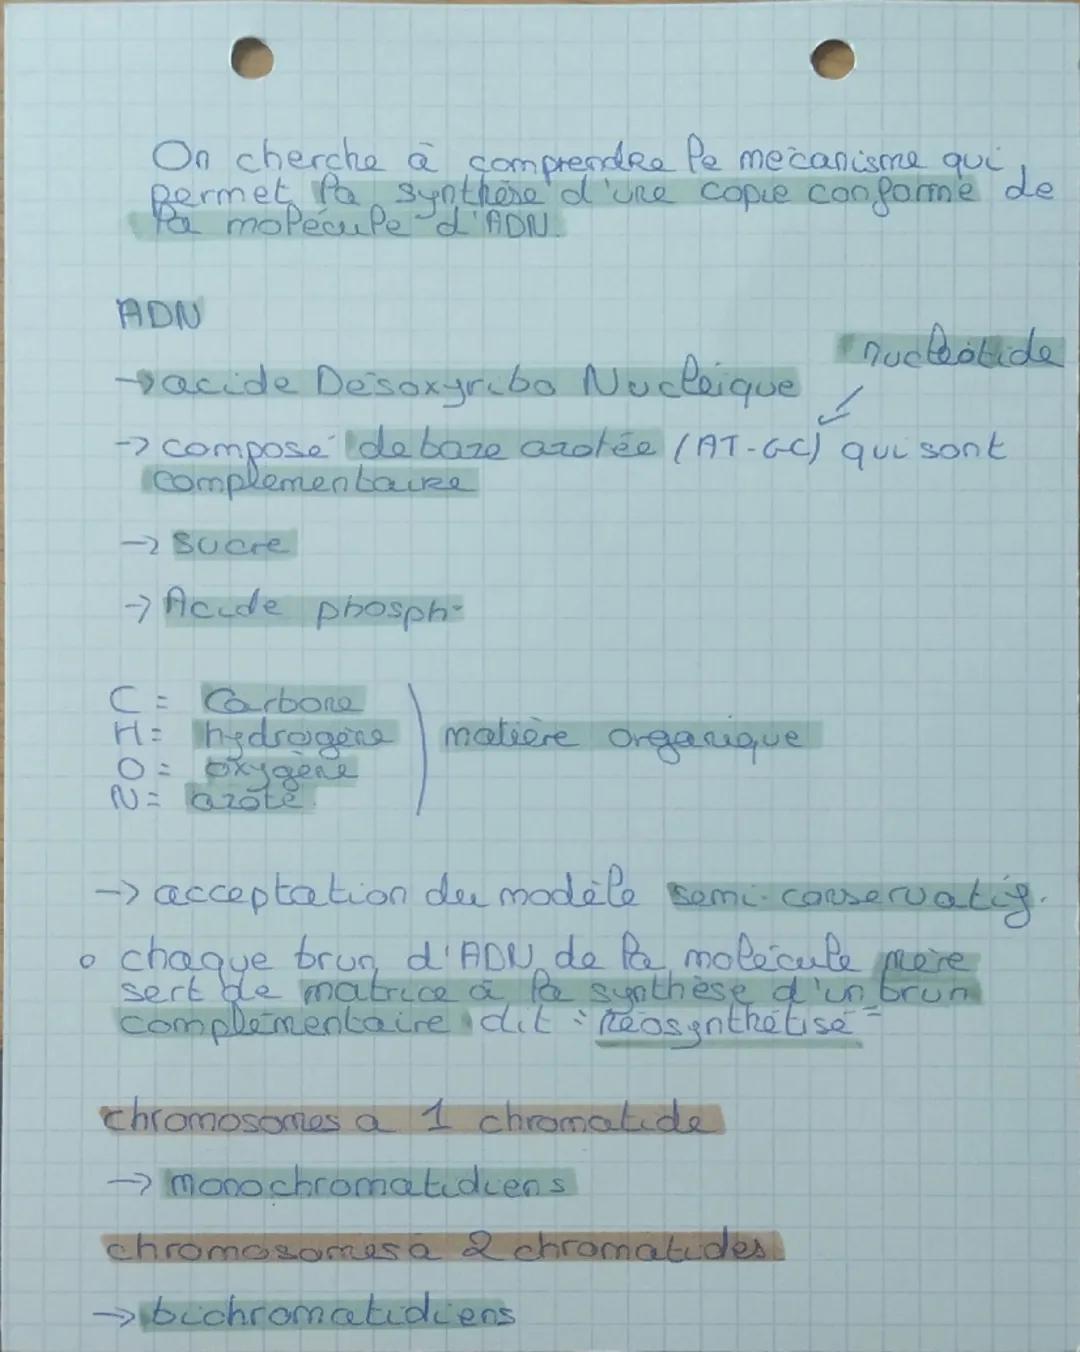 On cherche à comprendre le mécanisme qui
permet la synthèse d'une copie conforme de
la molécule d'ADN.
ADN
nucléotide
→ acide Désoxyribo Nucléique
→ composé de baze azotée (AT-GC) qui sont
complémentaire
→ sucre
→ Acide phosph-
C = Carbone
H = hydrogène
O = oxygène
N = azote.
matière organique
→ acceptation du modèle semi-conservatif.
• chaque brun d'ADN de la molécule mère
sert de matrice à la synthèse d'un brun
complémentaire dit "néosynthétisé"
chromosomes a 1 chromatide
→ monochromatidiens
chromosomes à 2 chromatides
→ bichromatidiens